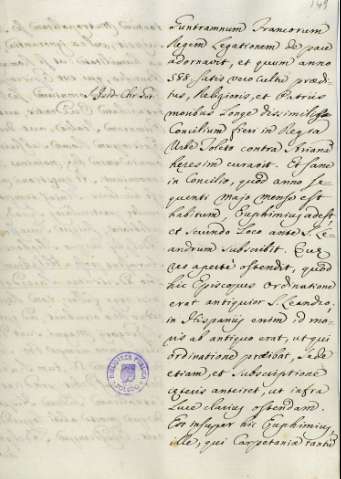 149
Guntramnum Francorum
Regem Legationem de pace
adornavit, et quum anno
588. satis vero cultu prædi-
tus, Religionis, et Patriis
moribus longe dissimilis
Concilium fieri in Regia
Urbe Toleto contra Arriana
heresim curavit. Et sane
in Concilio, quod anno se-
quenti majo mense est
habitum, Euphimius adest
et secundo loco ante S. Le-
andrum subscribit. Quæ
res aperte ostendit, quod
hic Episcopus ordinatione
erat antiquior S. Leandro.
in Hispaniis enim id mo-
ris ab antiquo erat, ut qui
ordinatione præibat, Sede
etiam, et Subscriptione
cæteris anteiret, ut infra
Luce clarius ostendam.
Est insuper hic Euphimius,
ille, qui Carpetaniæ tantu
S. Isid. Chr.
BIBLIOTECA PUBLICA
TOLEDO